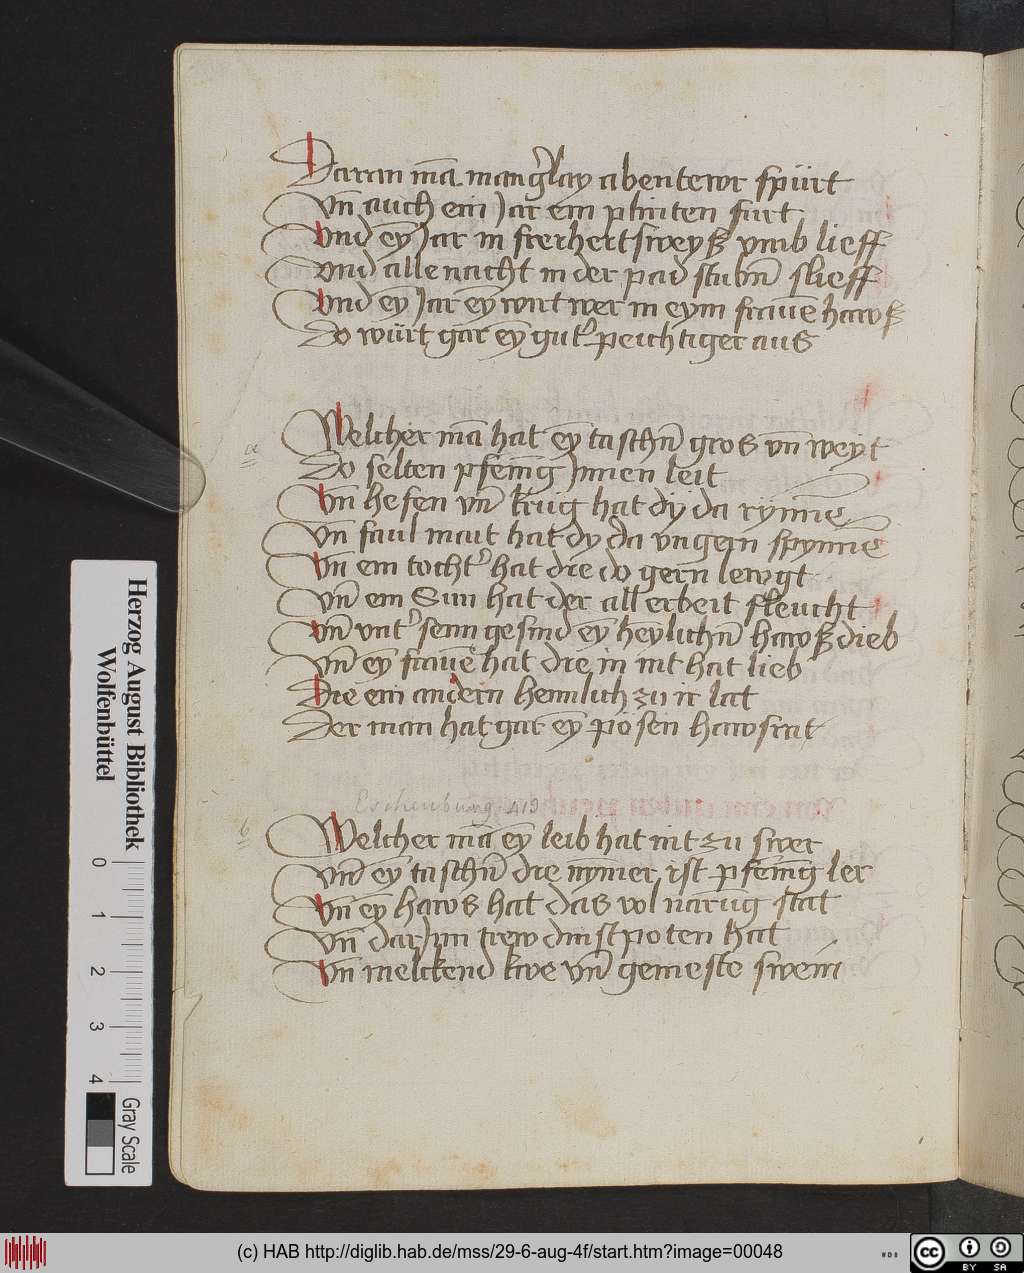 Daran mā mangʾlay abentewr spürt
Vn̄ auch ein Jar ein plinten furt
Vnd eÿ Jar in frerhertsweyß vmb lieff
Vnd alle nacht in der pad stubn̄ slieff
Vnd eÿ Jar eÿ wirt wer in eym frauē hawß
Do würt gar eÿ gutʾ peichtiger aus
Welcher mā hat eÿ taschn̄ gros vn̄ weyt
Do selten pfenīg Jnnen leit
Vn̄ hefen vn̄ krüg hat dÿ da rÿnnē
Vn̄ faul mait hat dy da vngern spynnē
Vn̄ ein tochtʾ hat die do gern lewgt
Vn̄ ein Sun hat der all erbeit fleucht
Vn̄ vntʾ seim gesind eÿ heylichn̄ hawßdieb
Vn̄ eÿ frauē hat die in nit hat lieb
Die ein andern heimlich zu ir lat
Der man hat gar eÿ posen hawsrat
a
Eschenburg 413
b
Welcher mā eÿ leib hat nit zu swer
Vn̄ eÿ taschn̄ die nymer ist pfenīg ler
Vn̄ eÿ haws hat das vol narūg stat
Vn̄ darJnn trew dinstpoten hat
Vn̄ melckend kwe vn̄ gemeste swein
Herzog August Bibliothek
Wolfenbüttel
0 1 2 3 4
Gray Scale
(c) HAB http://diglib.hab.de/mss/29-6-aug-4f/start.htm?image=00048
WDB
cc BY SA